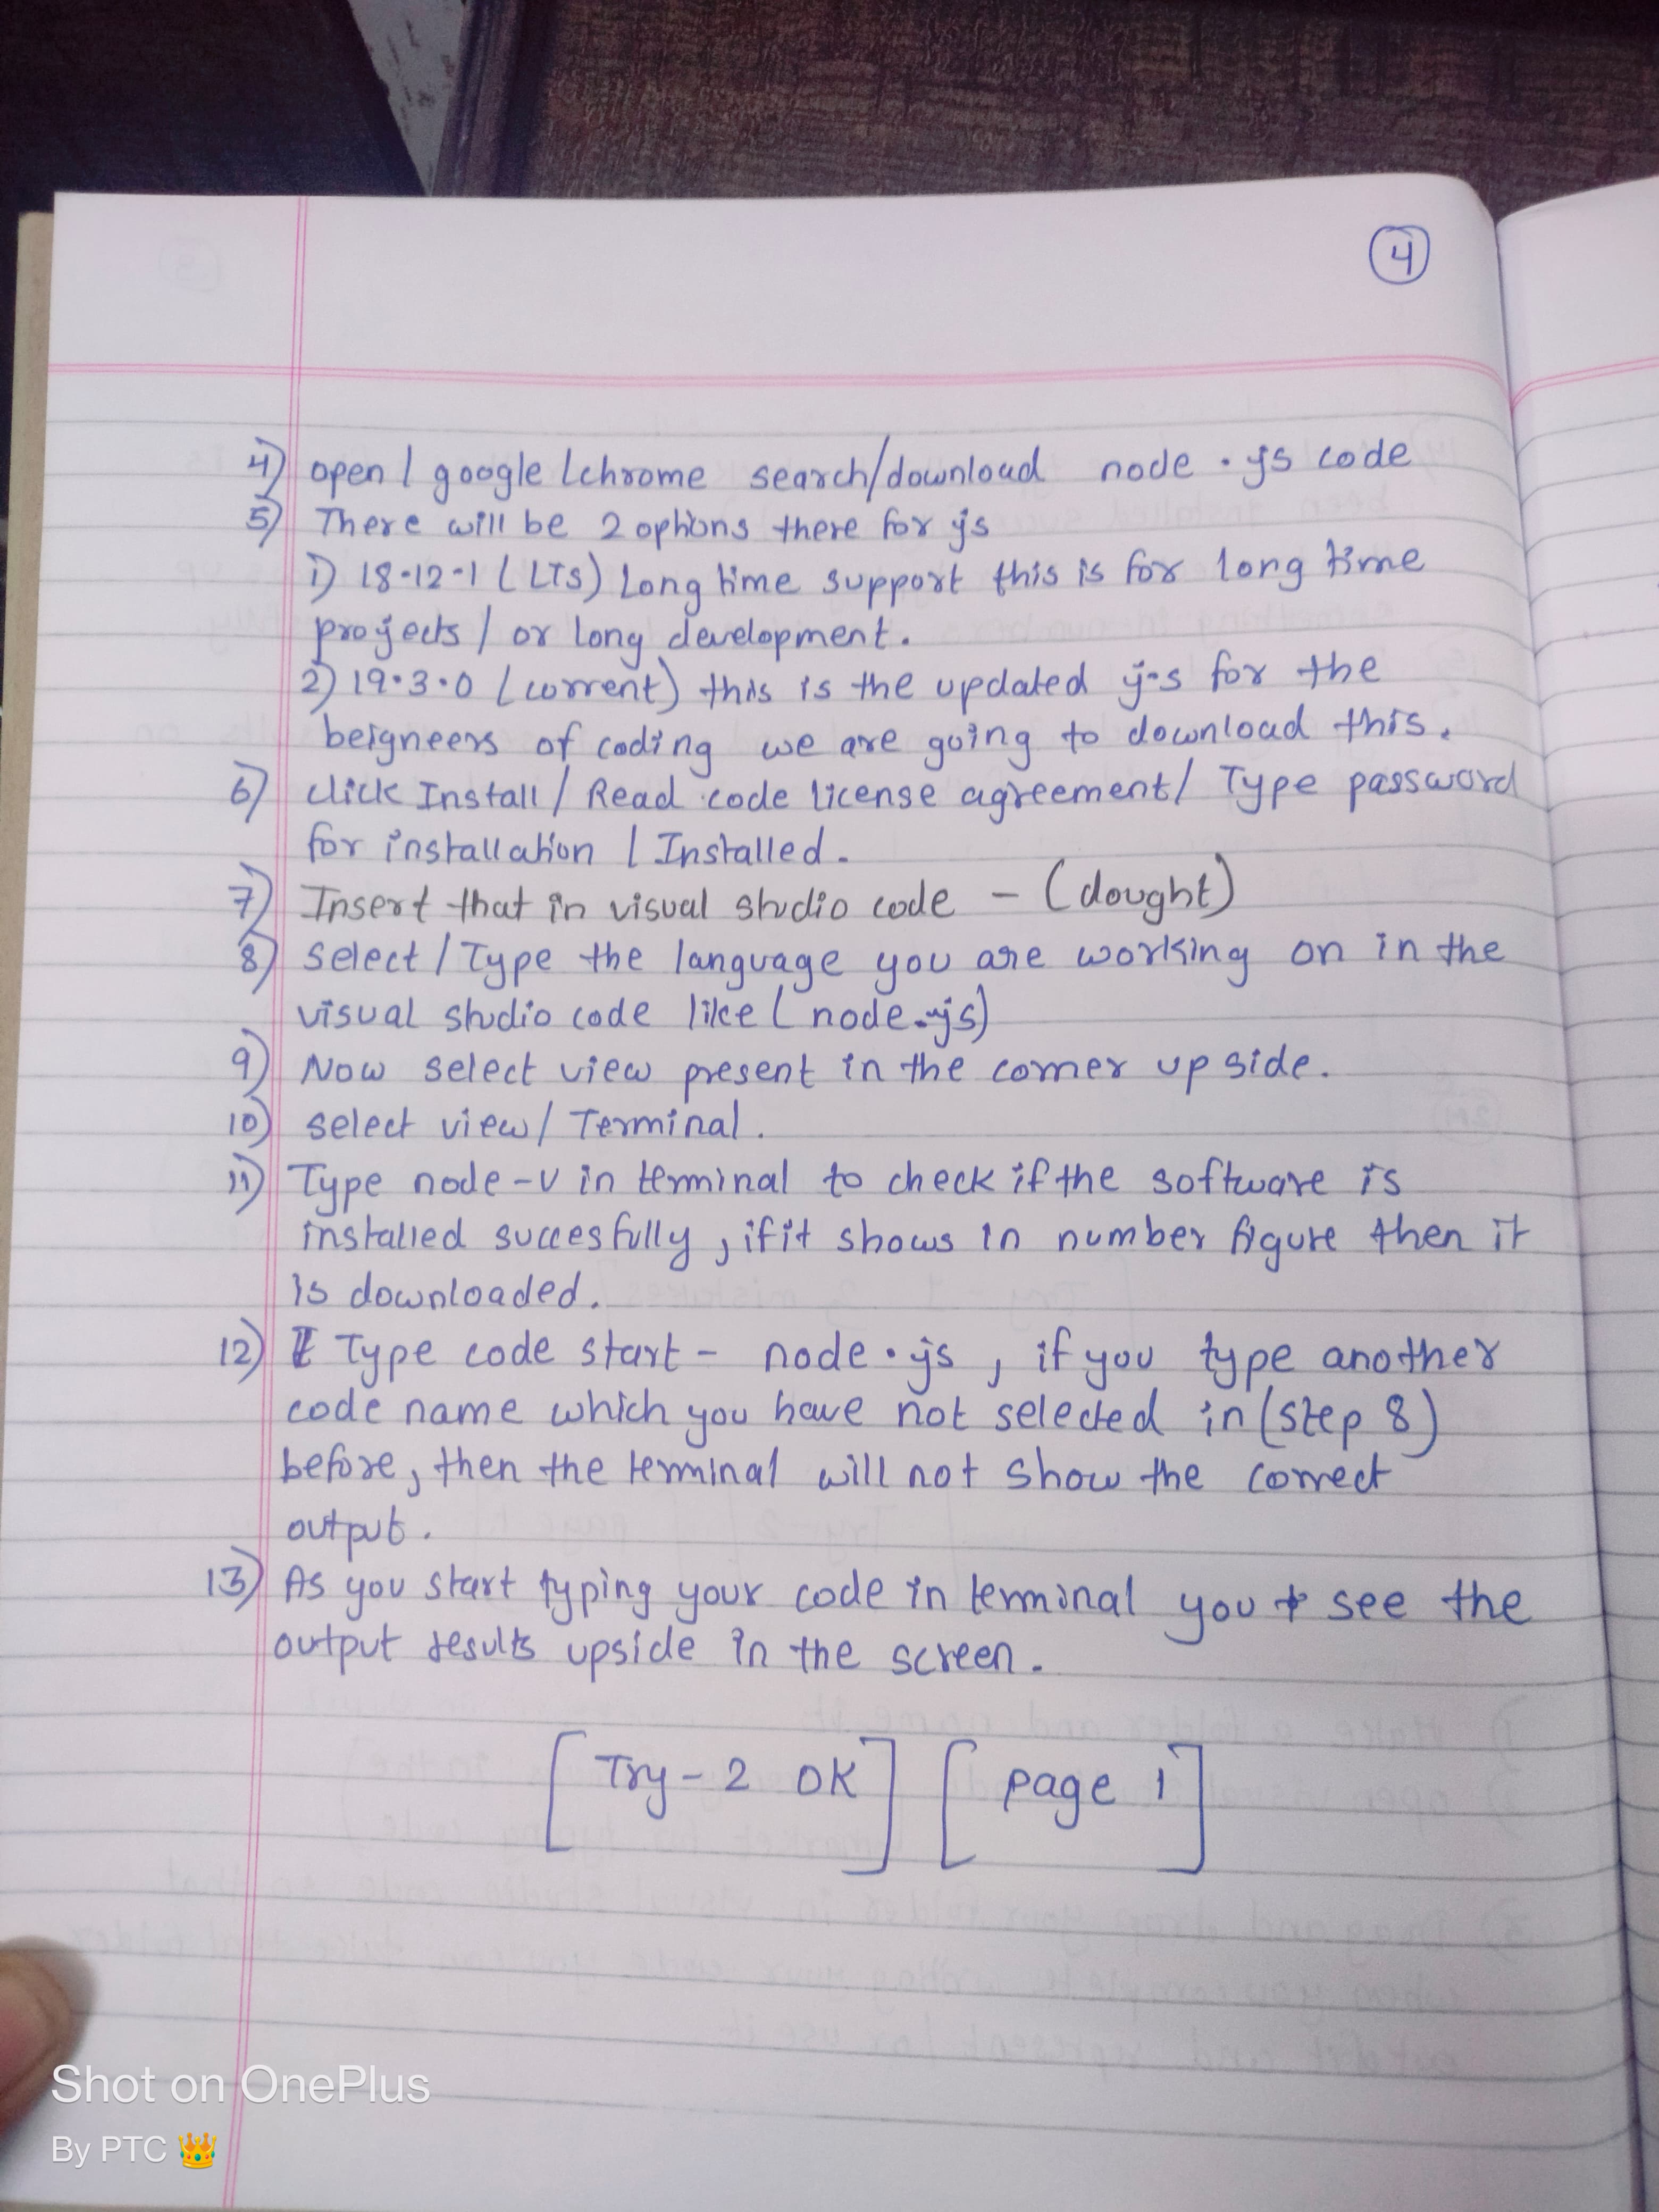 4
4) open / google / chrome search/download node.js code
5) There will be 2 options there for js
1) 18.12.1 (LTS) Long time support this is for long time
projects / or long development.
2) 19.3.0 (current) this is the updated j.s for the
beigneers of coding we are going to download this.
6) click Install / Read code license agreement / Type password
for installation / Installed.
7) Insert that in visual studio code - (dought)
8) select / Type the language you are working on in the
visual studio code like (node.js)
9) Now select view present in the corner up side.
10) select view / Terminal.
11) Type node -v in terminal to check if the software is
installed succesfully, if it shows in number figure then it
is downloaded.
12) Type code start - node.js, if you type another
code name which you have not selected in (step 8)
before, then the terminal will not show the correct
output.
13) As you start typing your code in terminal you see the
output results upside in the screen.
[Try - 2 OK] [page 1]
Shot on OnePlus
By PTC 👑